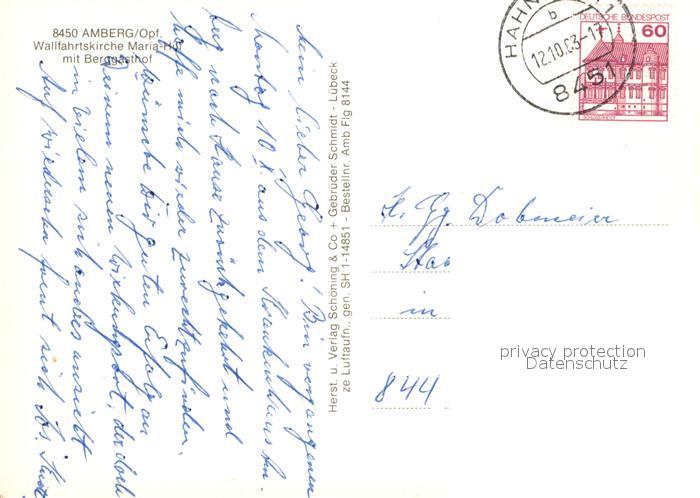 8450 AMBERG/Opf.
Wallfahrtskirche Maria-Hilf
mit Berggasthof
Mein lieber Georg! Bin vergangenen
Montag 10.X. aus dem Krankenhaus Am-
berg nach Hause zurückgekehrt und
hoffe mich wieder zurechtzufinden.
Wünsche Dir guten Erfolg an
Deinem neuen Wirkungsort, der doch
in vielem anders aussieht
Auf Wiedersehn freut sich
Herst. u. Verlag Schöning & Co + Gebrüder Schmidt - Lübeck
ze Luftaufn., gen. SH 1-14851 - Bestellnr. Amb Flg 8144
HAHN
b
12.10.83-17
8451
DEUTSCHE BUNDESPOST
60
H. Gg. Dobmeier
in
844
privacy protection
Datenschutz